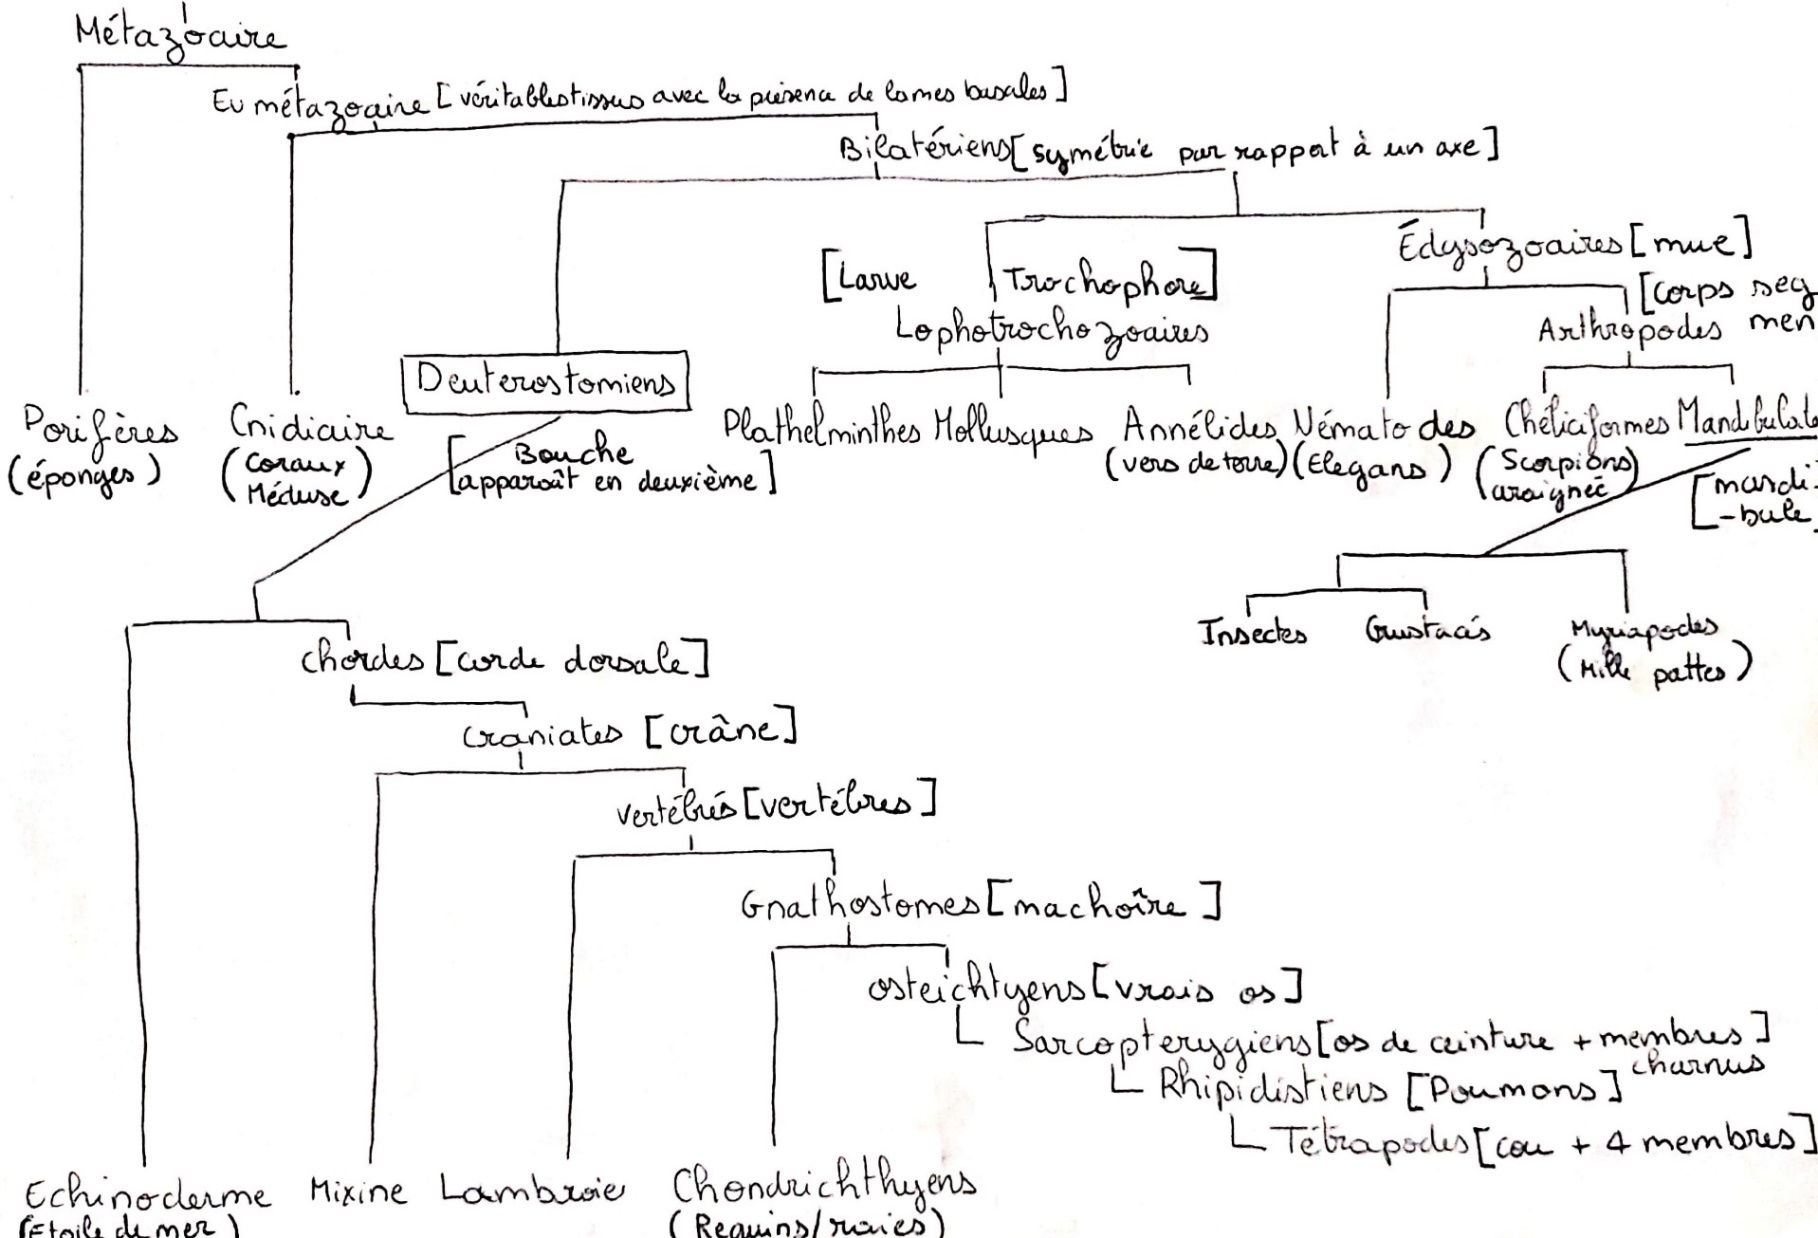 Métazoaire
Eumétazoaire [véritables tissus avec la présence de lames basales]
Bilatériens [symétrie par rapport à un axe]
Édysozoaires [mue]
[Larve Trochophore]
Lophotrochozoaires
[corps seg
Arthropodes men
Deuterostomiens
Porifères
(éponges)
Cnidiaire
(Coraux
Méduse)
[Bouche
apparaît en deuxième]
Plathelminthes Mollusques Annélides Nématodes Chéliciformes Mandibulate
(vers de terre) (Elegans) (Scorpions
araignée)
[mandi-
-bule]
Insectes Crustacés Myriapodes
(Mille pattes)
chordes [corde dorsale]
craniates [crâne]
vertébrés [vertèbres]
Gnathostomes [machoîre]
osteichtyens [vrais os]
Sarcopterygiens [os de ceinture + membres]
charnus
Rhipidistiens [Poumons]
Tétrapodes [cou + 4 membres]
Echinoderme Mixine Lambroie Chondrichthyens
(Etoile de mer) (Requins/raies)